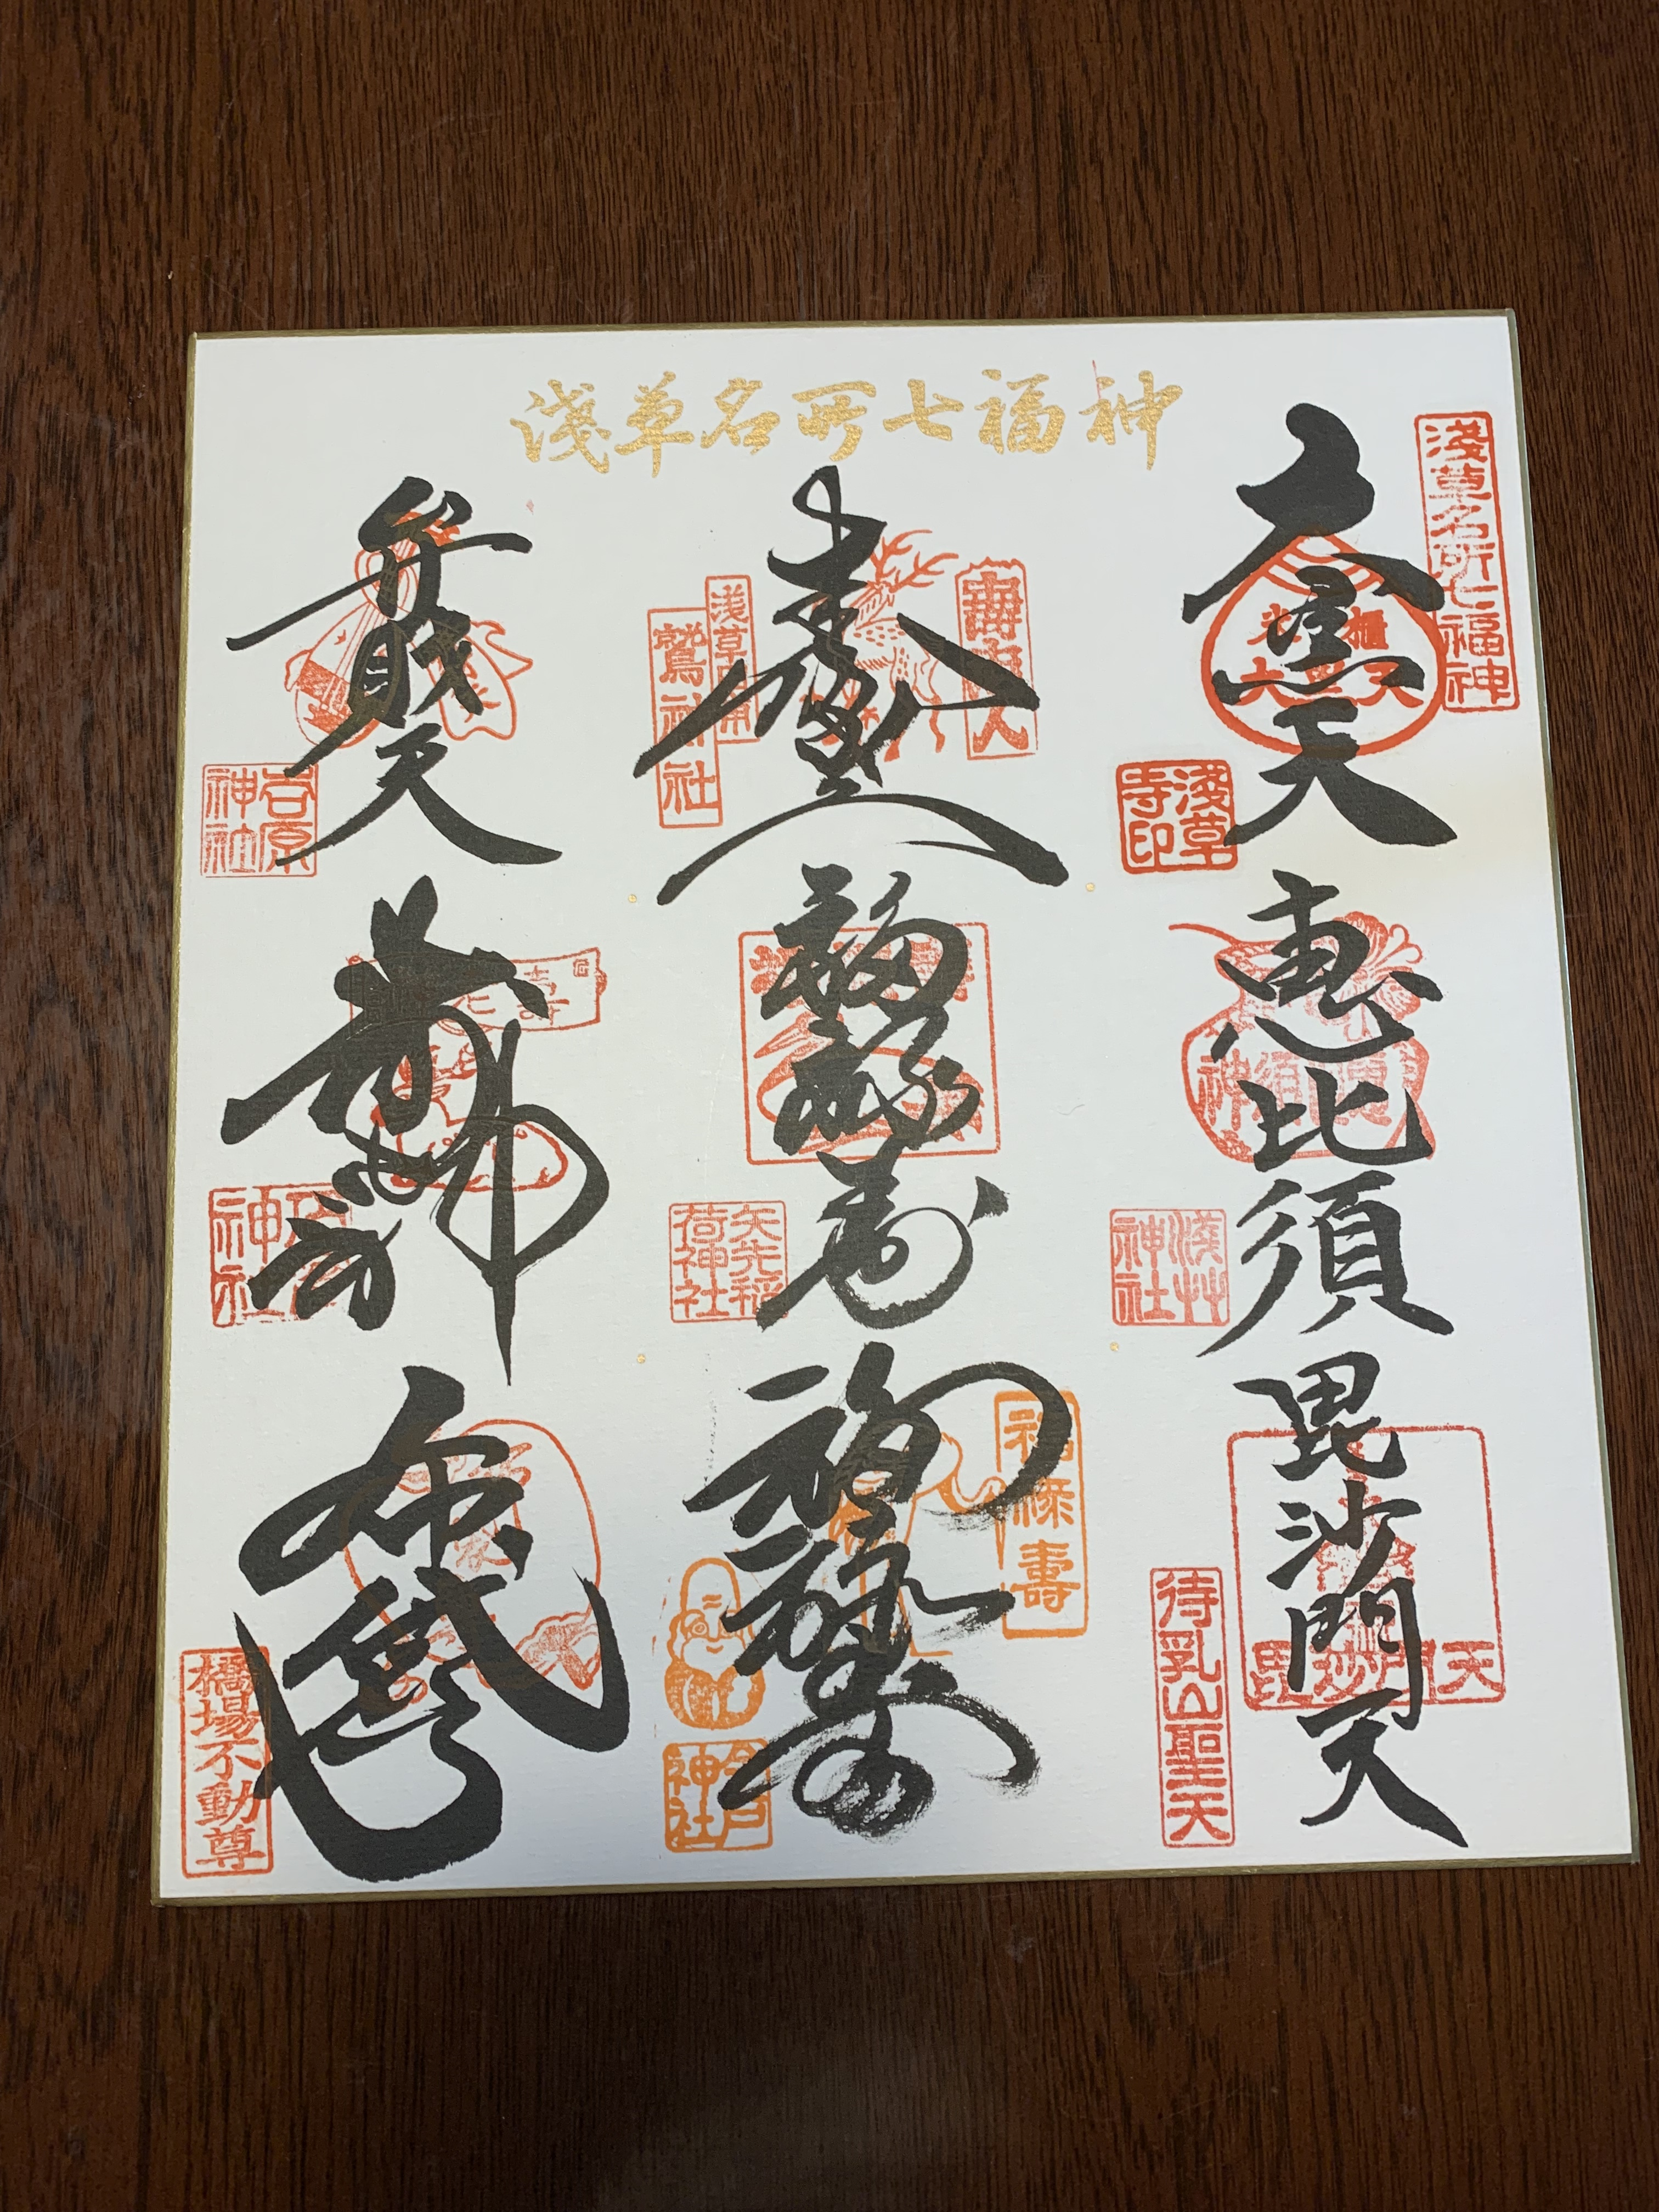 淺草名所七福神
淺草名所七福神
大黒天
淺草寺印
恵比須
淺草神社
毘沙門天
毘沙門天
待乳山聖天
壽老人
壽老人
浅草
鷲神社
福禄寿
矢先稲荷神社
福禄寿
福禄壽
今戸神社
弁財天
吉原神社
寿老神
神社
布袋
橋場不動尊